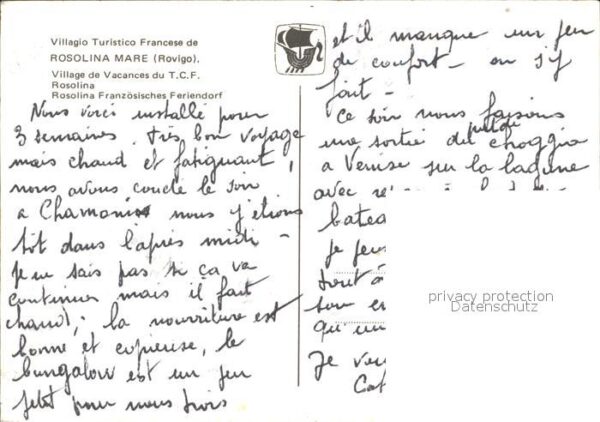 Villagio Turistico Francese de
ROSOLINA MARE (Rovigo).
Village de Vacances du T.C.F.
Rosolina
Rosolina Französisches Feriendorf
Nous voici installé pour
3 semaines. Très bon voyage
mais chaud et fatiguant,
nous avons couché le soir
a Chamonix nous y étions
tôt dans l'après midi -
je ne sais pas si ça va
continuer mais il fait
chaud, la nourriture est
bonne et copieuse, le
bungalow est un peu
petit pour nous trois
et il manque un peu
de confort - on s'y
fait -
Ce soir nous faisons
une sortie du choggia
a Venise sur la lagune
avec
batea
je
tout à
son
qu'un
Je
privacy protection
Datenschutz